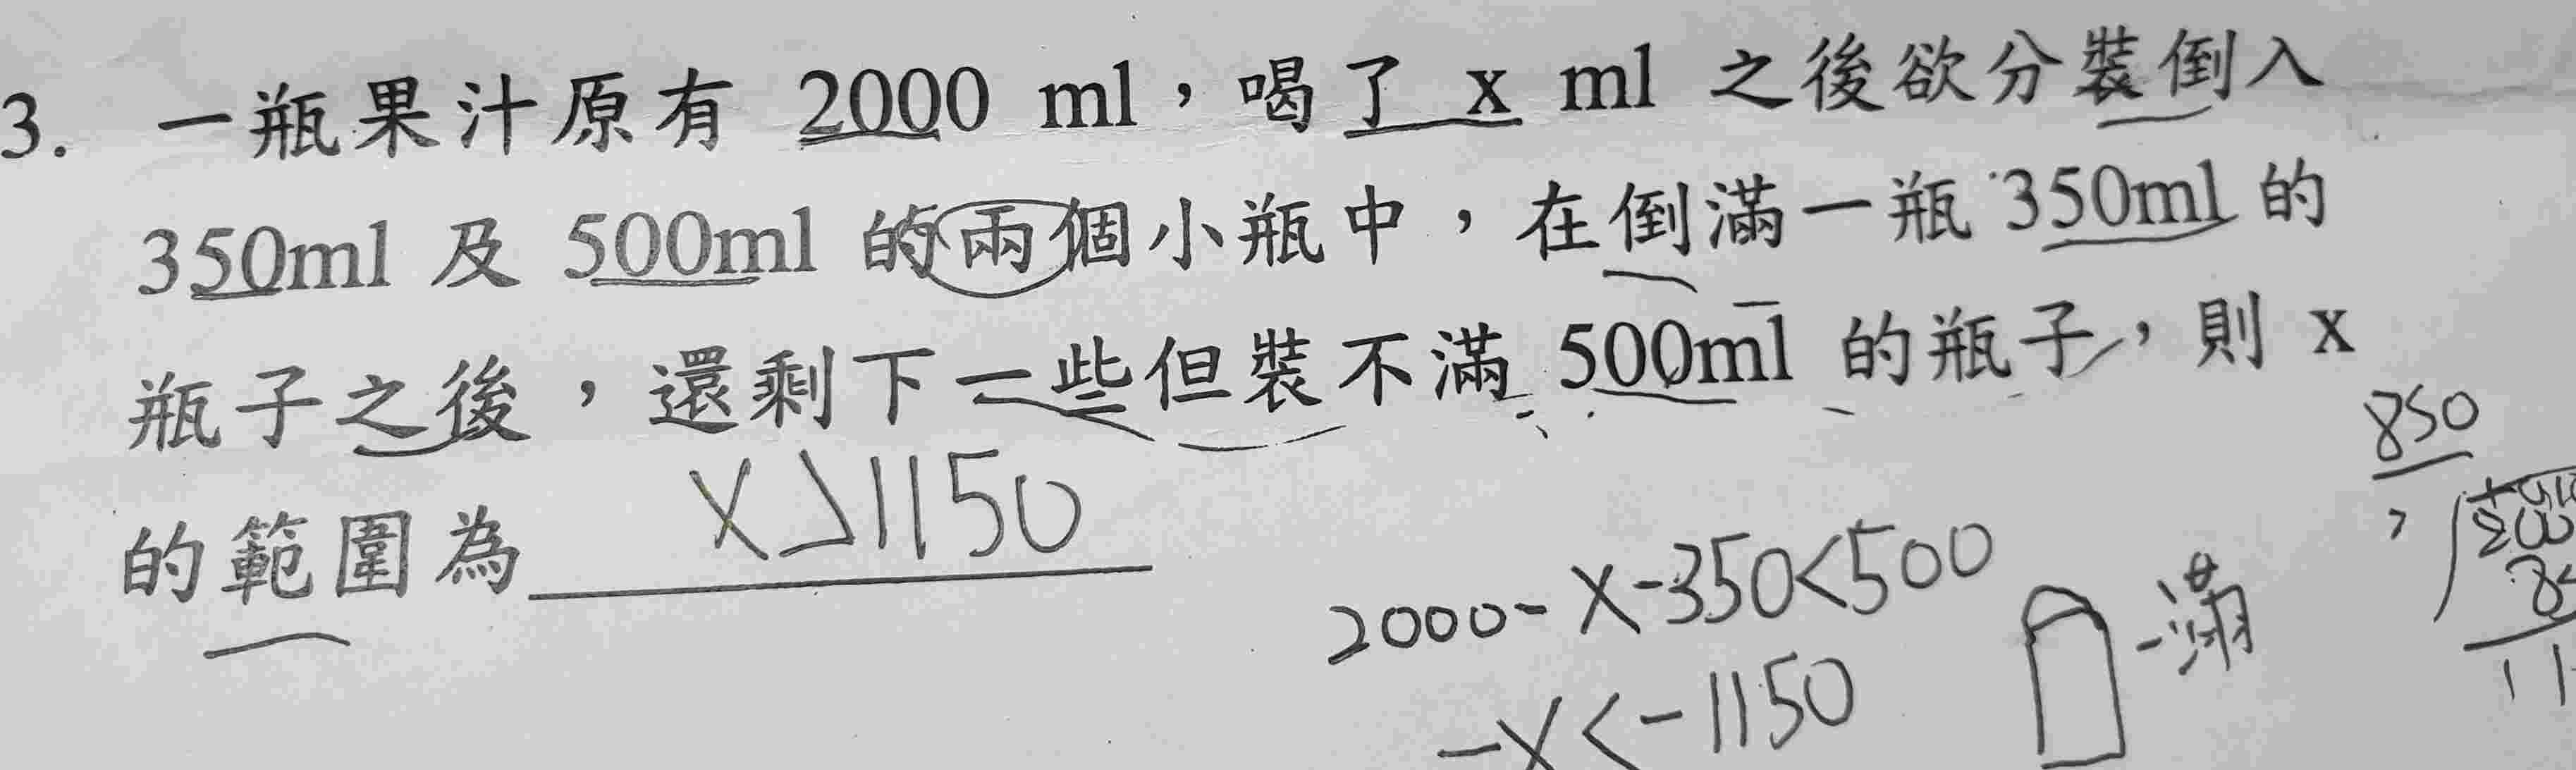 3. 一瓶果汁原有 2000 ml，喝了 x ml 之後欲分裝倒入
350ml 及 500ml 的兩個小瓶中，在倒滿一瓶 350ml 的
瓶子之後，還剩下一些但裝不滿 500ml 的瓶子，則 x
的範圍為 X>1150
850
2000-X-350<500
-X<-1150
-滿